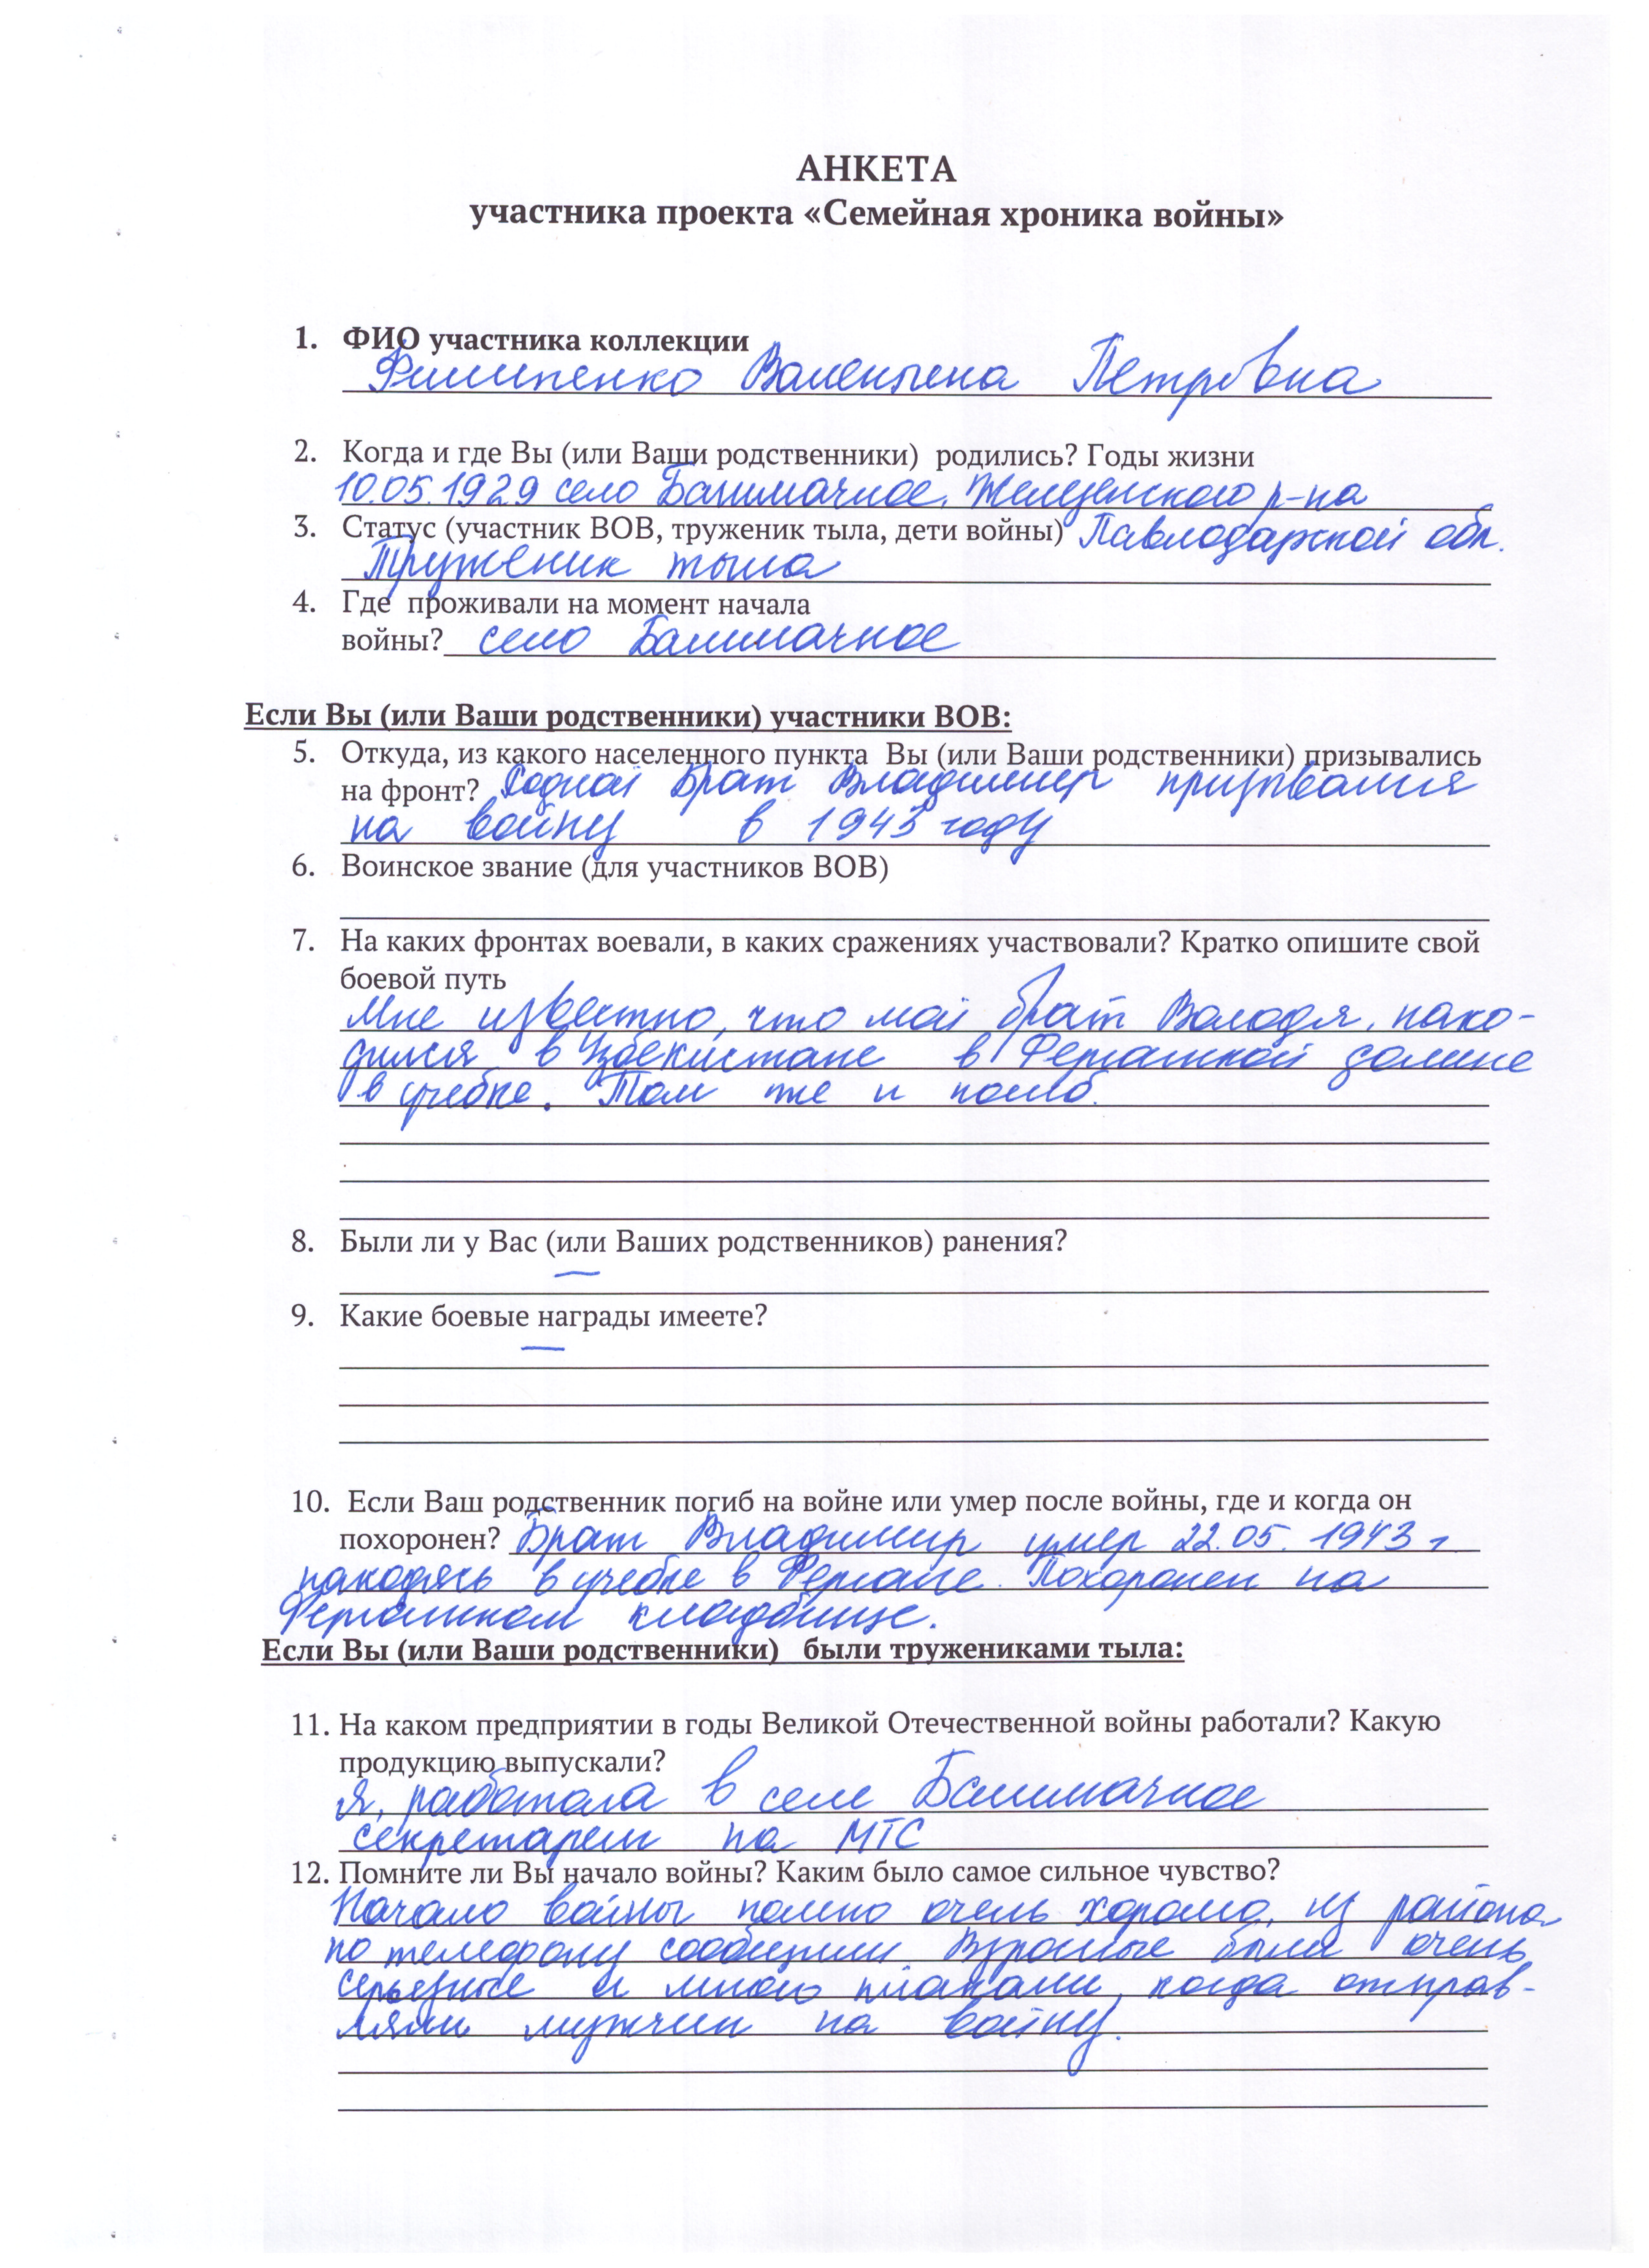 АНКЕТА
участника проекта «Семейная хроника войны»
1. ФИО участника коллекции
Филипенко Валентина Петровна
2. Когда и где Вы (или Ваши родственники) родились? Годы жизни
10.05.1929 село Башмачное, Железинского р-на
3. Статус (участник ВОВ, труженик тыла, дети войны) Павлодарской обл.
Труженик тыла
4. Где проживали на момент начала
войны? село Башмачное
Если Вы (или Ваши родственники) участники ВОВ:
5. Откуда, из какого населенного пункта Вы (или Ваши родственники) призывались
на фронт? Родной брат Владимир призывался
на войну в 1943 году
6. Воинское звание (для участников ВОВ)
7. На каких фронтах воевали, в каких сражениях участвовали? Кратко опишите свой
боевой путь
Мне известно, что мой брат Володя, нахо-
дился в Узбекистане в Ферганской долине
в учебке. Там же и погиб.
8. Были ли у Вас (или Ваших родственников) ранения?
—
9. Какие боевые награды имеете?
—
10. Если Ваш родственник погиб на войне или умер после войны, где и когда он
похоронен? Брат Владимир умер 22.05.1943 г
находясь в учебке в Фергане. Похоронен на
Ферганском кладбище.
Если Вы (или Ваши родственники) были тружениками тыла:
11. На каком предприятии в годы Великой Отечественной войны работали? Какую
продукцию выпускали?
Я, работала в селе Башмачное
секретарем на МТС
12. Помните ли Вы начало войны? Каким было самое сильное чувство?
Начало войны помню очень хорошо, из района
по телефону сообщили. Взрослые были очень
серьезные и много плакали, когда отправ-
ляли мужчин на войну.